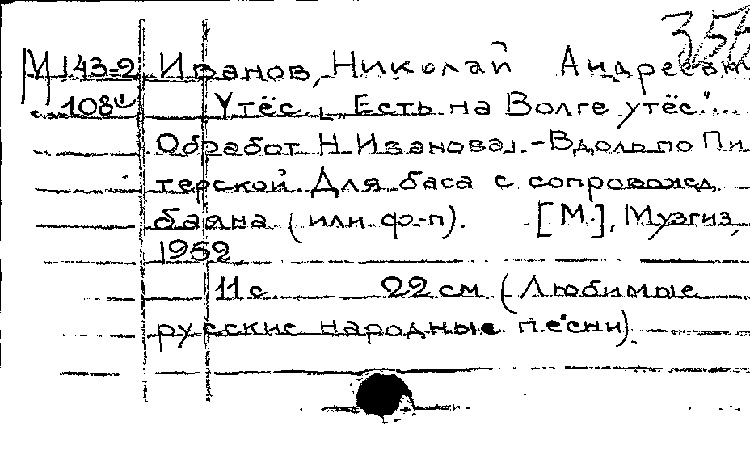 355
М 143-2 Иванов, Николай Андреевич
108 Утёс. „Есть на Волге утёс"...
Обработ. Н. Иванова. - Вдоль по Пи
терской. Для баса с сопровожд.
баяна (или ф-п). [М.], Музгиз,
1952
11 с 22 см (Любимые
русские народные песни).